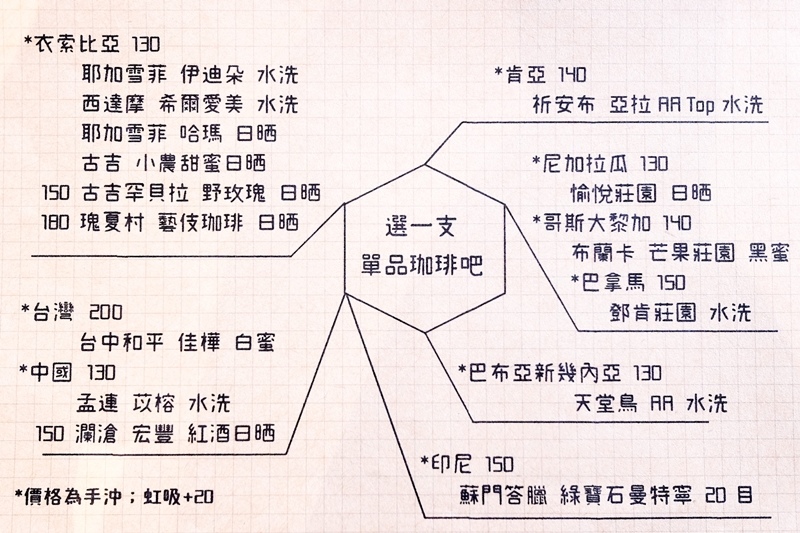 *衣索比亞 130
耶加雪菲 伊迪朵 水洗
西達摩 希爾愛美 水洗
耶加雪菲 哈瑪 日晒
古吉 小農甜蜜日晒
150 古吉罕貝拉 野玫瑰 日晒
180 瑰夏村 藝伎珈琲 日晒
*肯亞 140
祈安布 亞拉 AA Top 水洗
*尼加拉瓜 130
愉悅莊園 日晒
*哥斯大黎加 140
布蘭卡 芒果莊園 黑蜜
*巴拿馬 150
鄧肯莊園 水洗
選一支
單品珈琲吧
*台灣 200
台中和平 佳樺 白蜜
*中國 130
孟連 苡榕 水洗
150 瀾滄 宏豐 紅酒日晒
*巴布亞新幾內亞 130
天堂鳥 AA 水洗
*印尼 150
蘇門答臘 綠寶石曼特寧 20 目
*價格為手沖；虹吸+20